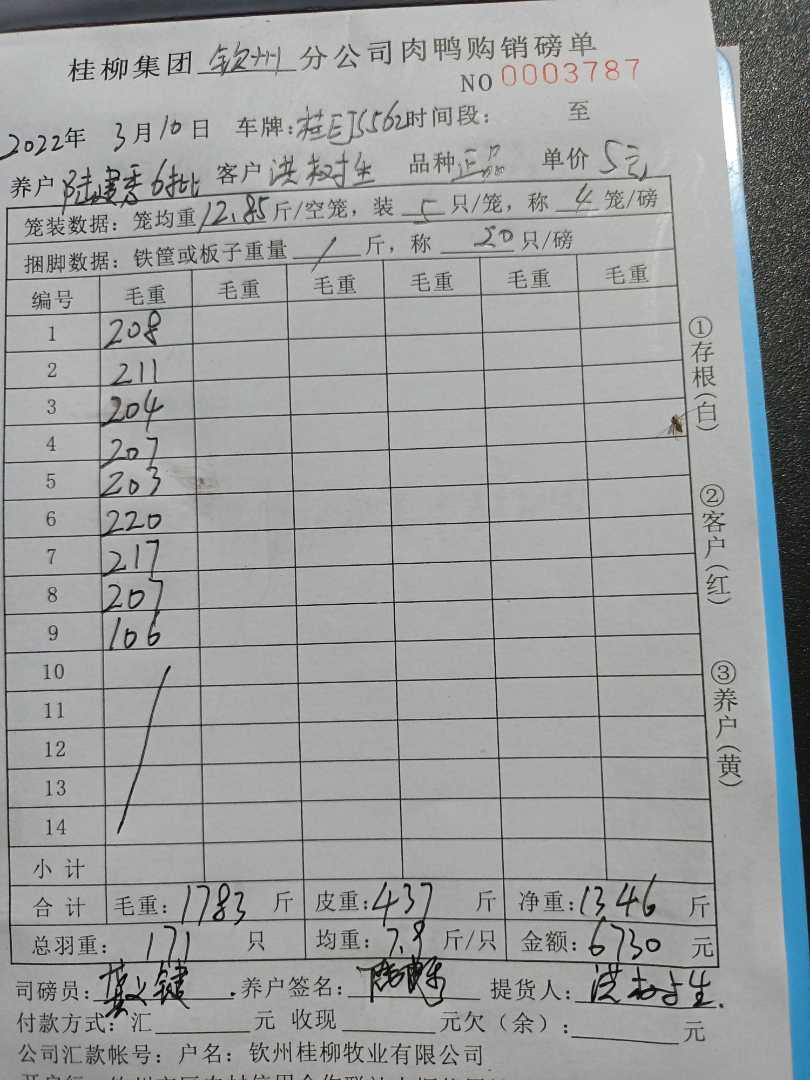 桂柳集团 钦州 分公司肉鸭购销磅单
NO 0003787
2022年 3月10日 车牌:桂EJS562时间段: 至
养户 陆建秀6批 客户 洪树生 品种 正品 单价 5元
笼装数据:笼均重12.85斤/空笼,装 5 只/笼,称 4 笼/磅
捆脚数据:铁筐或板子重量 / 斤,称 20只/磅
编号 毛重 毛重 毛重 毛重 毛重 毛重
1 208
2 211
3 204
4 207
5 203
6 220
7 217
8 207
9 106
10
11
12
13
14
小计
合计 毛重:1783 斤 皮重:437 斤 净重:1346 斤
总羽重: 171 只 均重:7.9 斤/只 金额:6730 元
司磅员: 养户签名: 提货人:洪树生.
付款方式:汇 元 收现 元欠(余): 元
公司汇款帐号:户名:钦州桂柳牧业有限公司
①存根(白)
②客户(红)
③养户(黄)